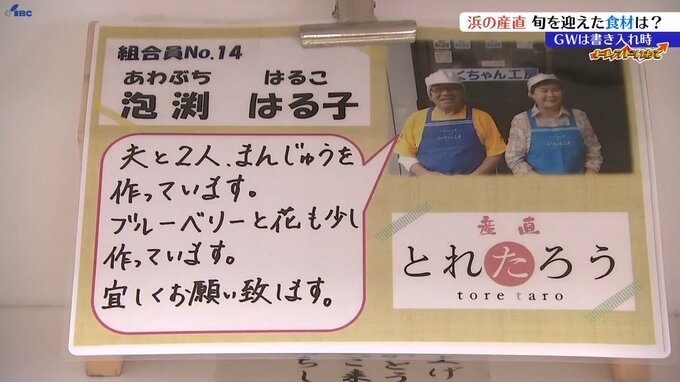 IBC
浜の産直 旬を迎えた食材は?
GWは書き入れ時
組合員No.14
あわぶち はるこ
泡渕 はる子
くちゃん工房
夫と2人、まんじゅうを
作っています。
ブルーベリーと花も少し
作っています。
宜しくお願い致します。
産直
とれたろう
tore taro